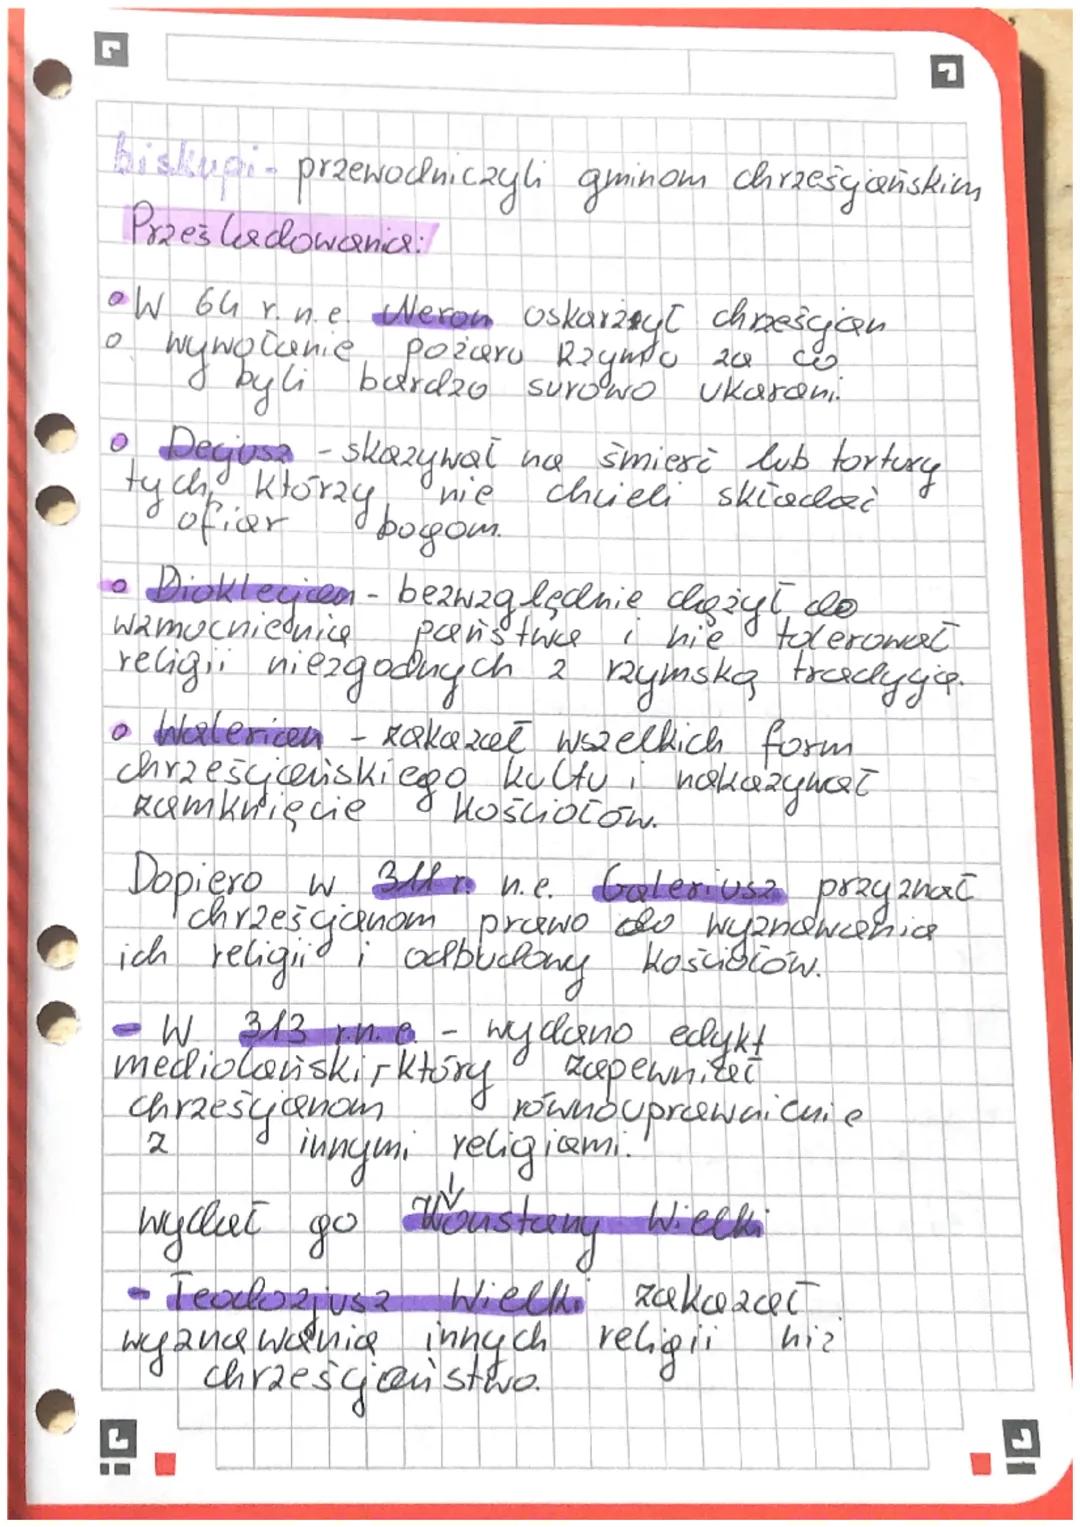 biskupi - przewodniczyli gminom chrześcjańskim
Prześladowania:
W 64 r. n.e. Neron oskarżył chrześcjan
o wywołanie pożaru Rzymu za co
byli bardzo surowo ukarani.
Decjusz - skazywał na śmierć lub tortury
tych, którzy nie chcieli składać
ofiar bogom.
Dioklecjan - bezwzględnie dążył do
wzmocnienia państwa i nie tolerował
religii niezgodnych z rzymską tradycją.
Walerian - zakazał wszelkich form
chrześcjańskiego kultu i nakazywał
zamknięcie kościołów.
Dopiero w 311 r. n.e. Galeriusz przyznał
chrześcjanom prawo do wyznawania
ich religii i odbudowy kościołów.
- W 313 r.n.e. - wydano edykt
mediolański, który zapewniał
chrześcjanom równouprawnienie
z innymi religiami.
↓
wydał go Konstanty Wielki
- Teodozjusz Wielki zakazał
wyznawania innych religii niż
chrześcjaństwo.